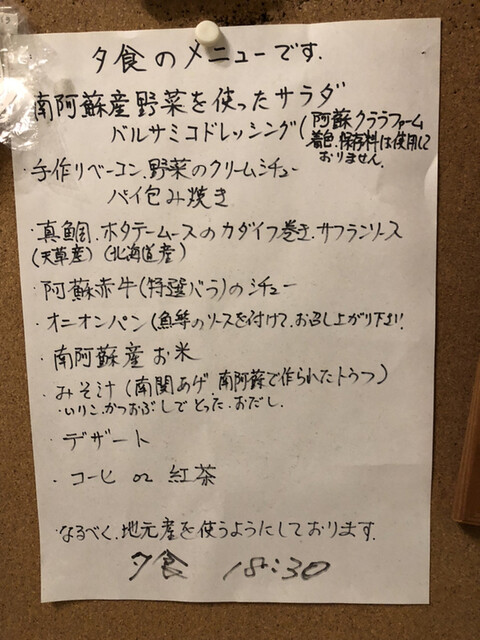 夕食のメニューです.
南阿蘇産野菜を使ったサラダ
バルサミコドレッシング(阿蘇クララファーム
着色、保存料は使用して
おりません.
・手作りベーコン.野菜のクリームシチュー
パイ包み焼き
・真鯛.ホタテムースのカダイフ巻き.サフランソース
(天草産)(北海道産)
・阿蘇赤牛(特選バラ)のシチュー
・オニオンパン(魚等のソースを付けて.お召し上がり下さい
・南阿蘇産お米
・みそ汁(南関あげ.南阿蘇で作られたトウフ)
・いりこ.かつおぶしでとった.おだし.
・デザート
・コーヒ or 紅茶
・なるべく.地元産を使うようにしております.
夕食 18:30